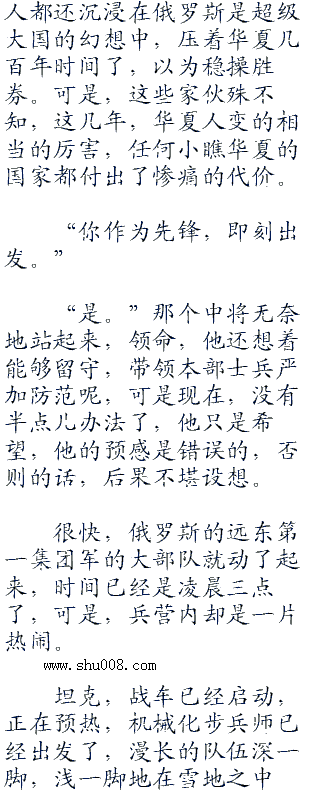 人都还沉浸在俄罗斯是超级
大国的幻想中，压着华夏几
百年时间了，以为稳操胜
券。可是，这些家伙殊不
知，这几年，华夏人变的相
当的厉害，任何小瞧华夏的
国家都付出了惨痛的代价。
“你作为先锋，即刻出
发。”
“是。”那个中将无奈
地站起来，领命，他还想着
能够留守，带领本部士兵严
加防范呢，可是现在，没有
半点儿办法了，他只是希
望，他的预感是错误的，否
则的话，后果不堪设想。
很快，俄罗斯的远东第
一集团军的大部队就动了起
来，时间已经是凌晨三点
了，可是，兵营内却是一片
热闹。
www.shu008.com
坦克，战车已经启动，
正在预热，机械化步兵师已
经出发了，漫长的队伍深一
脚，浅一脚地在雪地之中